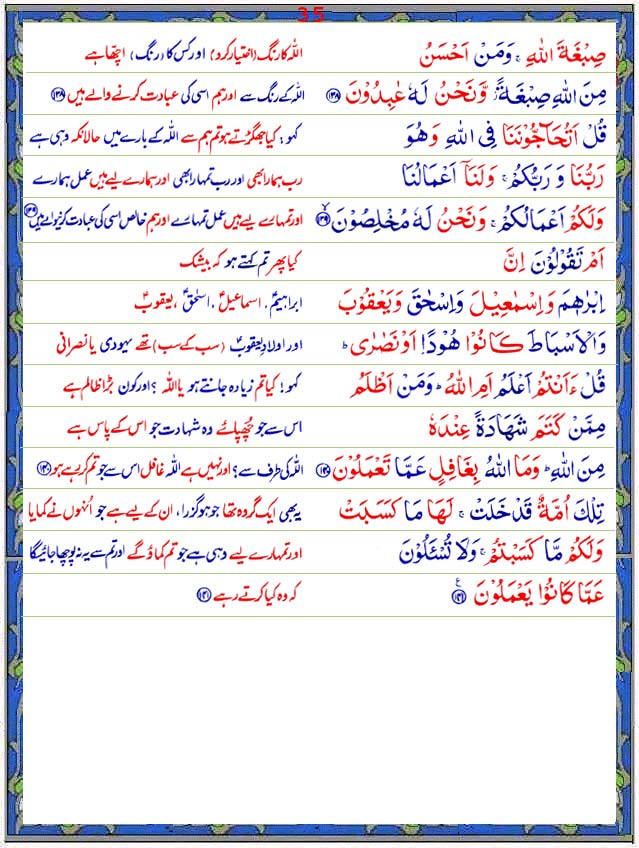 35
صِبْغَةَ اللّٰهِ ۚ وَمَنْ اَحْسَنُ اللہ کا رنگ (اختیار کرو) اور کس کا (رنگ) اچھا ہے
مِنَ اللّٰهِ صِبْغَةً ۫ وَّنَحْنُ لَهٗ عٰبِدُوْنَ ﴿۱۳۸﴾ اللہ کے رنگ سے اور ہم اسی کی عبادت کرنے والے ہیں ﴿۱۳۸﴾
قُلْ اَتُحَآجُّوْنَنَا فِى اللّٰهِ وَهُوَ کہو : کیا جھگڑتے ہو تم ہم سے اللہ کے بارے میں حالانکہ وہی ہے
رَبُّنَا وَ رَبُّكُمْ ۚ وَلَنَاۤ اَعْمَالُنَا رب ہمارا بھی اور رب تمہارا بھی اور ہمارے لیے ہیں عمل ہمارے
وَلَكُمْ اَعْمَالُكُمْ ۚ وَنَحْنُ لَهٗ مُخْلِصُوْنَ ﴿۱۳۹﴾ اور تمہارے لیے ہیں عمل تمہارے اور ہم خالص اسی کی عبادت کرنیوالے ہیں ﴿۱۳۹﴾
اَمْ تَقُوْلُوْنَ اِنَّ کیا پھر تم کہتے ہو کہ بیشک
اِبْرٰهٖمَ وَاِسْمٰعِيْلَ وَاِسْحٰقَ وَيَعْقُوْبَ ابراہیمؑ، اسماعیلؑ، اسحٰقؑ، یعقوبؑ
وَالْاَسْبَاطَ كَانُوْا هُوْدًا اَوْ نَصٰرٰى ؕ اور اولادِ یعقوبؑ (سب کے سب) تھے یہودی یا نصرانی
قُلْ ءَاَنْتُمْ اَعْلَمُ اَمِ اللّٰهُ ؕ وَمَنْ اَظْلَمُ کہو ! کیا تم زیادہ جانتے ہو یا اللہ ؟ اور کون بڑا ظالم ہے
مِمَّنْ كَتَمَ شَهَادَةً عِنْدَهٗ اس سے جو چُھپائے وہ شہادت جو اس کے پاس ہے
مِنَ اللّٰهِ ؕ وَمَا اللّٰهُ بِغَافِلٍ عَمَّا تَعْمَلُوْنَ ﴿۱۴۰﴾ اللہ کی طرف سے ؟ اور نہیں ہے اللہ غافل اس سے جو تم کر رہے ہو ﴿۱۴۰﴾
تِلْكَ اُمَّةٌ قَدْ خَلَتْ ۚ لَهَا مَا كَسَبَتْ یہ بھی ایک گروہ تھا جو ہو گزرا ، ان کے لیے ہے جو اُنہوں نے کمایا
وَلَكُمْ مَّا كَسَبْتُمْ ۚ وَلَا تُسْئَلُوْنَ اور تمہارے لیے وہی ہے جو تم کماؤ گے اور تم سے یہ نہ پوچھا جائیگا
عَمَّا كَانُوْا يَعْمَلُوْنَ ﴿۱۴۱﴾ کہ وہ کیا کرتے رہے ﴿۱۴۱﴾